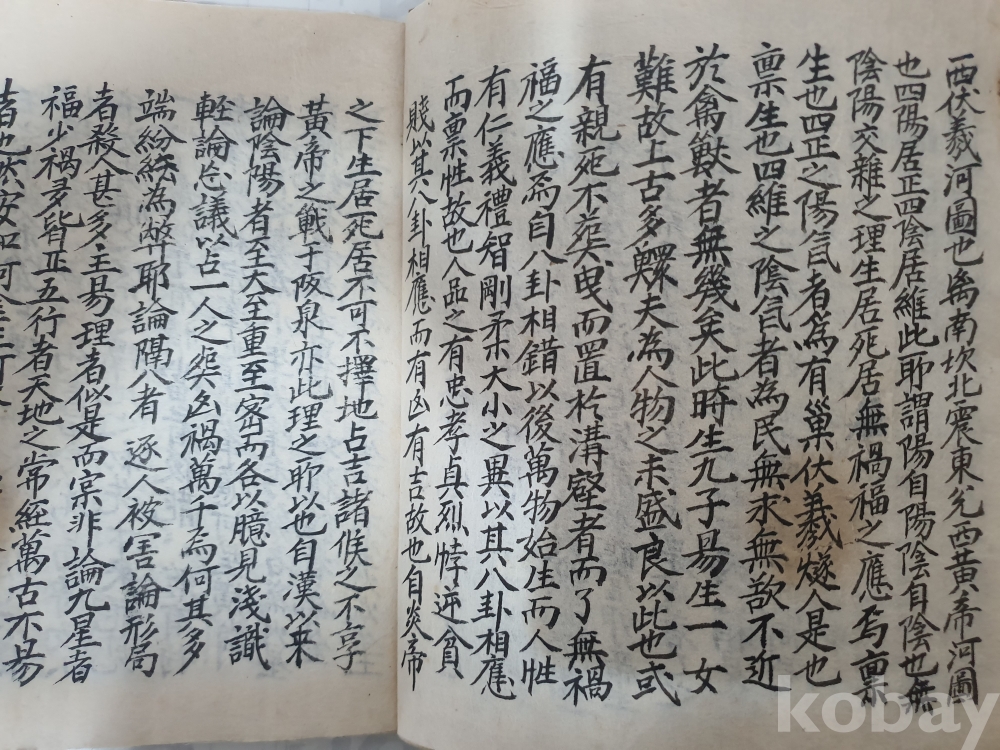 西伏羲河圖也离南坎北震東兌西黃帝河圖
也四陽居正四陰居維此耶謂陽自陽陰自陰也無
陰陽交雜之理生居死居無禍福之應焉禀
生也四正之陽氣者為有巢伏羲燧人是也
禀生也四維之陰氣者為民無求無欲不近
於禽獸者無幾矣此時生九子易生一女
難故上古多鰥夫為人物之未盛良以此也或
有親死不葬曳而置於溝壑者而了無禍
福之應焉自八卦相錯以後萬物始生而人性
有仁義禮智剛柔大小之異以其八卦相應
而禀性故也人品之有忠孝貞烈悖逆貧
賤以其八卦相應而有凶有吉故也自炎帝
之下生居死居不可不擇地占吉諸候之不享
黃帝之戰于阪泉亦此理之耶以也自漢以來
論陰陽者至大至重至密而各以臆見淺識
輕論忘議以占一人之葬凶禍萬千焉何其多
端紛紜為弊耶論隔八者逐人被害論形局
者殺人甚多主昜理者似是而宲非論九星者
福少禍多皆正五行者天地之常経萬古不昜
者也然安如何
kobay